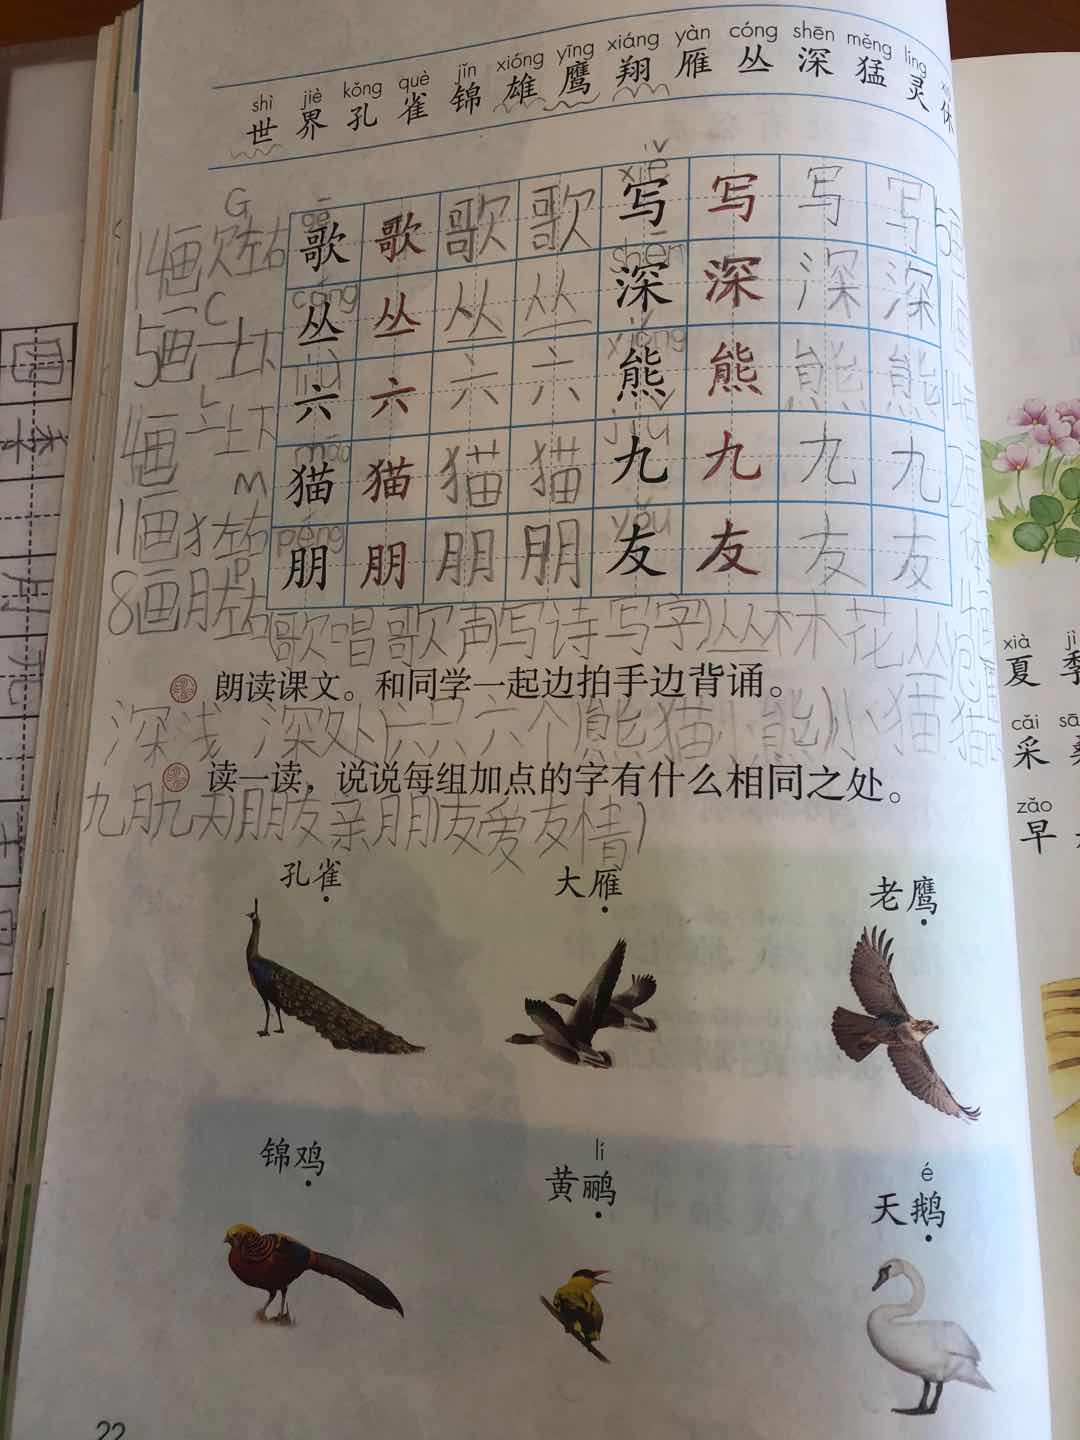 shì jiè kǒng què jǐn xióng yīng xiáng yàn cóng shēn měng líng
世 界 孔 雀 锦 雄 鹰 翔 雁 丛 深 猛 灵 休
gē xiě
歌 歌 歌 歌 写 写 写 写
cóng shēn
丛 丛 丛 丛 深 深 深 深
liù xióng
六 六 六 六 熊 熊 熊 熊
māo jiǔ
猫 猫 猫 猫 九 九 九 九
péng yǒu
朋 朋 朋 朋 友 友 友 友
G
14画欠左右
C
5画一上下
L
4画亠上下
M
11画犭左右
P
8画月左右
歌唱歌声写诗写字丛林花丛
朗读课文。和同学一起边拍手边背诵。
深浅 深处 六只六个熊猫小熊小猫
读一读，说说每组加点的字有什么相同之处。
九月九天朋友亲朋友爱友情
孔雀
大雁
老鹰
锦鸡
lí
黄鹂
é
天鹅
22
xià jì
夏 季
cǎi
采
zǎo
早
四
季